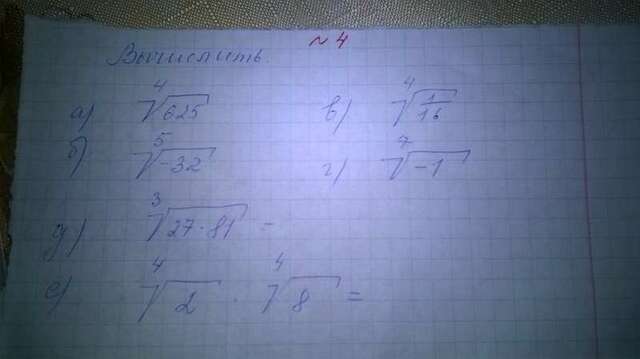 № 4
Вычислить.
а) ⁴√625 в) ⁴√1/16
б) ⁵√-32 г) ⁷√-1
д) ³√27·81 =
е) ⁴√2 · ⁴√8 =